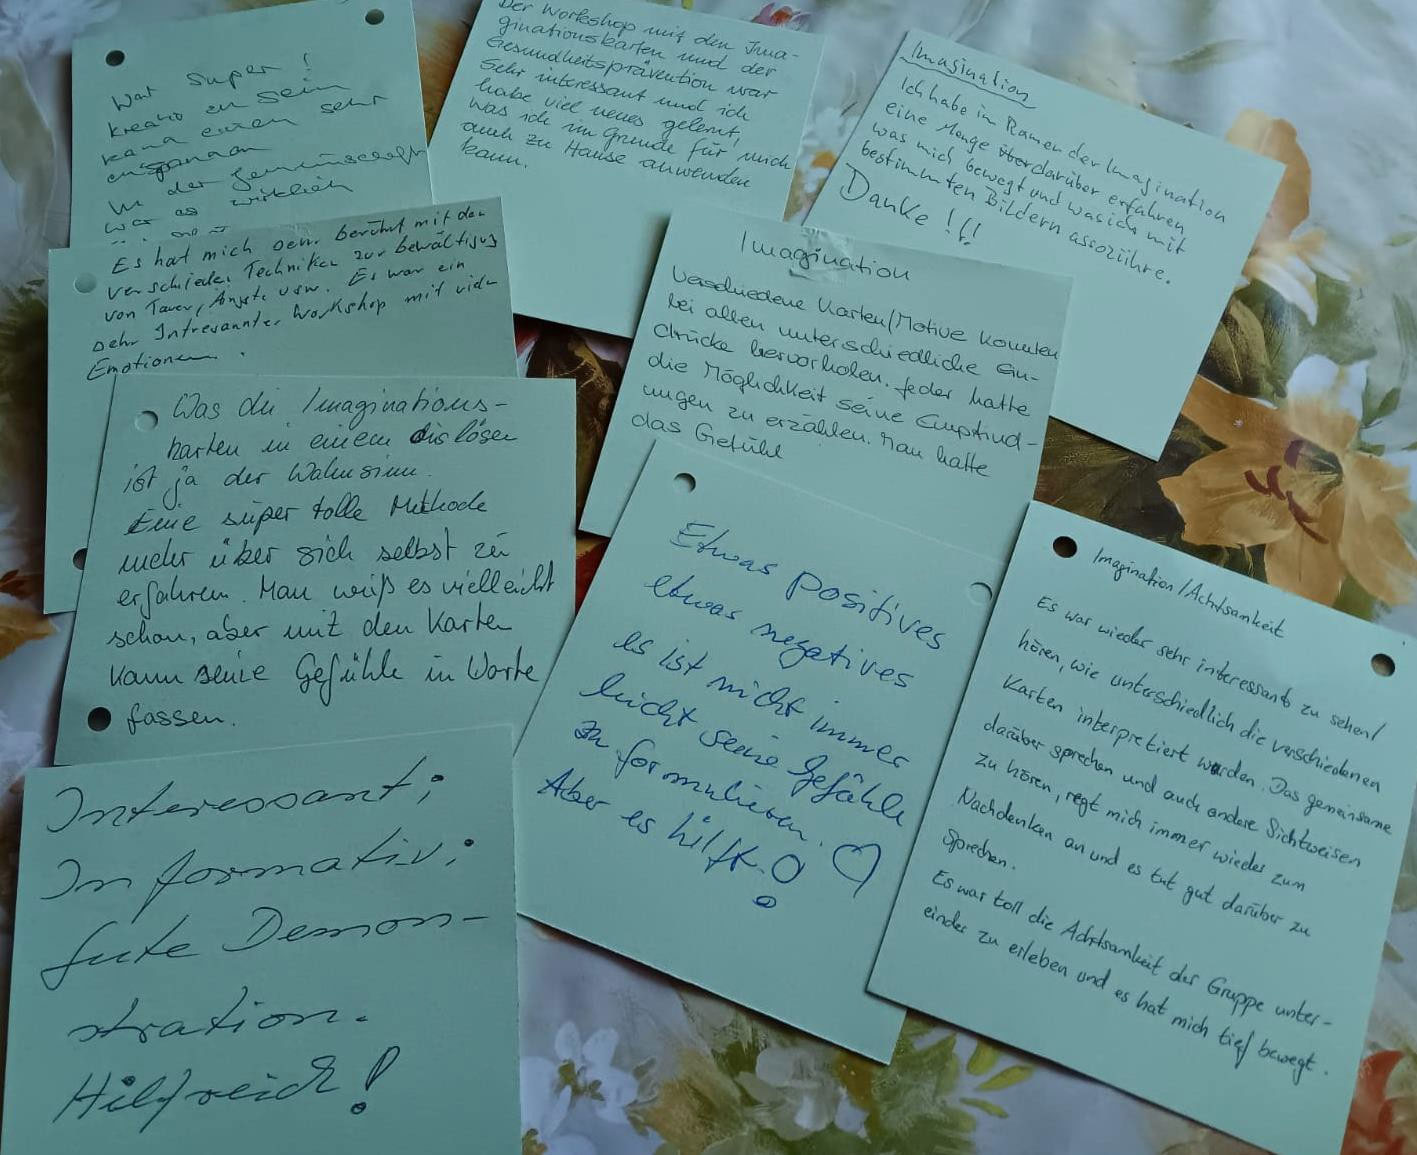 War super!
kreativ zu sein
kann einen sehr
In der Gemeinschaft
war es wirklich
Der Workshop mit den Ima-
ginationskarten und der
Gesundheitsprävention war
sehr interessant und ich
habe viel neues gelernt,
was ich im Grunde für mich
auch zu Hause anwenden
kann.
Imagination
Ich habe in Ramen der Imagination
eine Menge darüber erfahren
was mich bewegt und was ich mit
bestimmten Bildern assoziihre.
Danke !!!
Es hat mich sehr berührt mit den
verschieden Techniken zur bewältigung
von Tauer, Ängste usw. Es war ein
sehr Intresannter Workshop mit vielen
Emotionen.
Imagination
Verschiedene Karten/Motive konnten
bei allen unterschiedliche Ein-
drücke hervorholen. Jeder hatte
die Möglichkeit seine Empfind-
ungen zu erzählen. Man hatte
das Gefühl
Was die Imaginations-
karten in einem auslösen
ist ja der Wahnsinn.
Eine super tolle Methode
mehr über sich selbst zu
erfahren. Man weiß es vielleicht
schon, aber mit den Karten
kann seine Gefühle in Worte
fassen.
Etwas positives
etwas negatives
es ist nicht immer
leicht seine Gefühle
zu formulieren.
Aber es hilft!
Imagination/Achtsamkeit
Es war wieder sehr interessant zu sehen/
hören, wie unterschiedlich die verschiedenen
Karten interpretiert werden. Das gemeinsame
darüber sprechen und auch andere Sichtweisen
zu hören, regt mich immer wieder zum
Nachdenken an und es tut gut darüber zu
sprechen.
Es war toll die Achtsamkeit der Gruppe unter-
einder zu erleben und es hat mich tief bewegt.
Interessant;
Informativ;
Gute Demon-
stration.
Hilfreich!